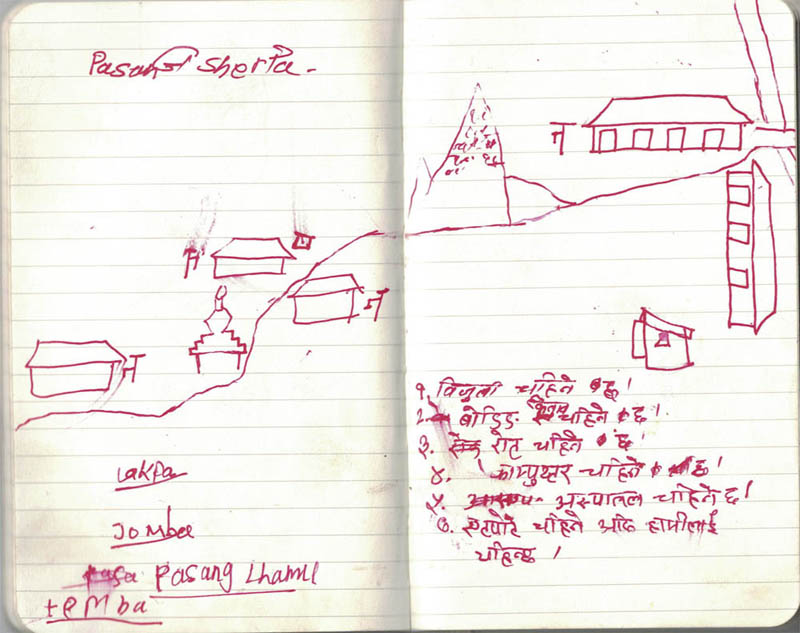 Pasang Sherpa.
Lakpa
Jomba
Pasang Lhamu
temba
१. विजुली चाहिने छ।
2. बोर्डिङ चाहिने छ।
३. रोत चाहिने छ
४. काम्पुटर चाहिने छ।
५. अस्पातल चाहिने छ।
चाहिने हामीलाई
चाहिन्छ ।